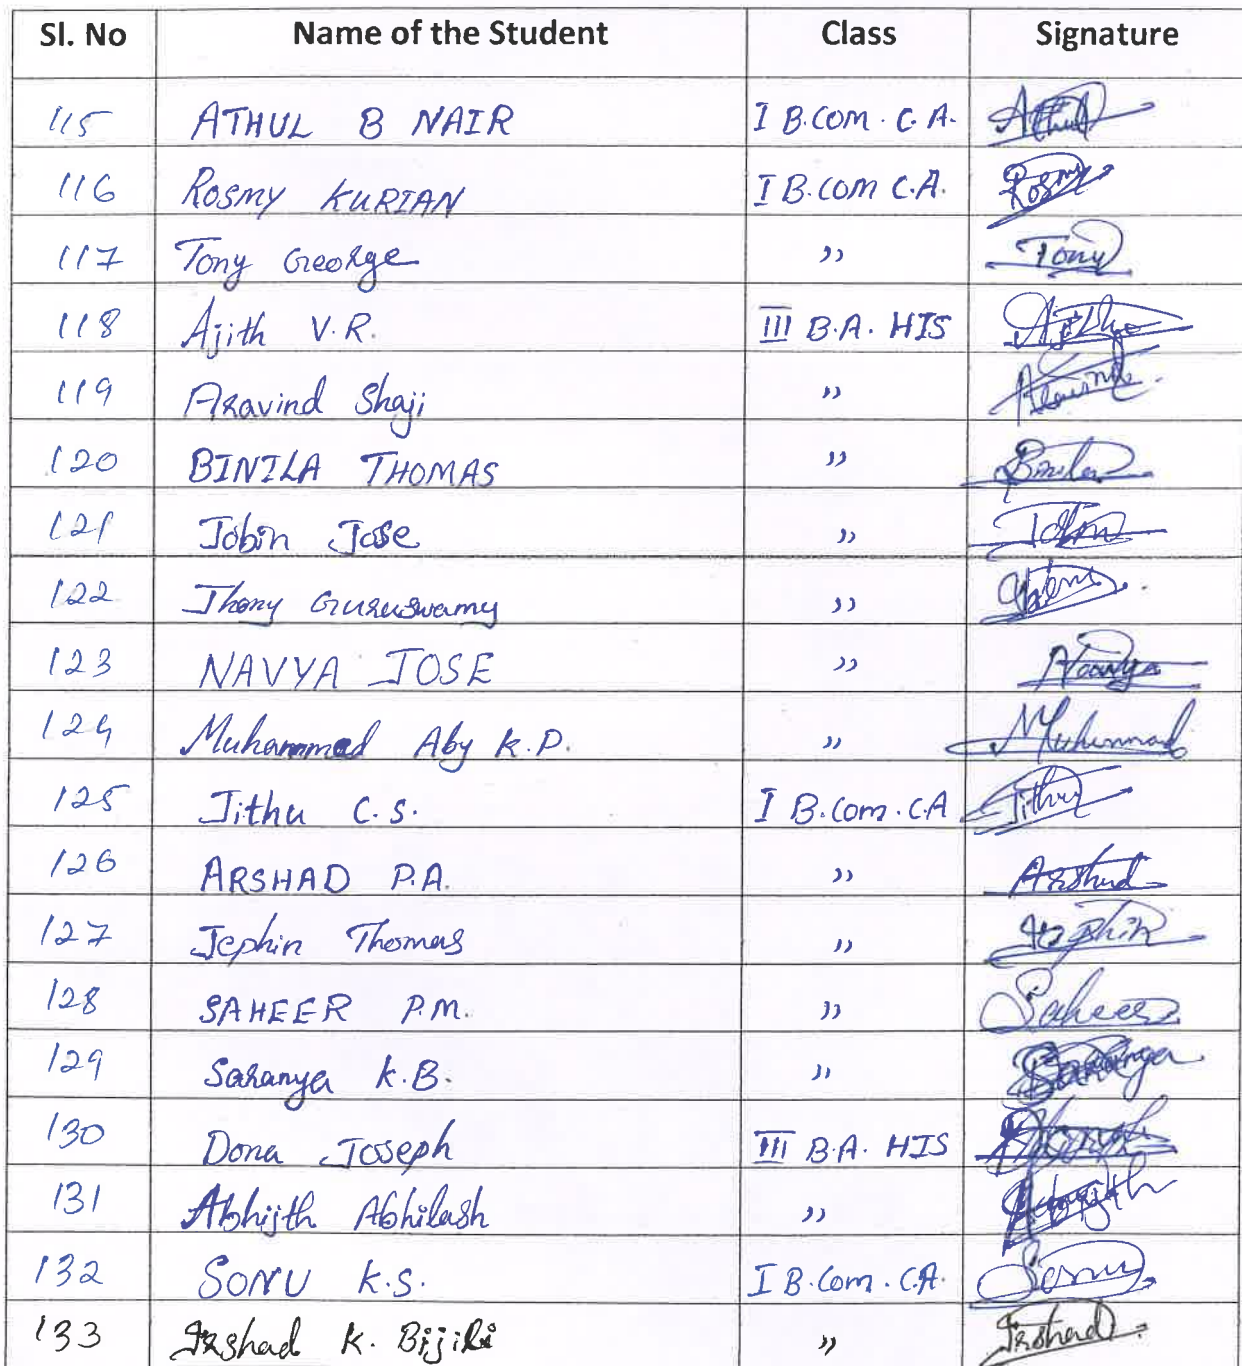 Sl. No Name of the Student Class Signature
115 ATHUL B NAIR I B.COM. C.A. Athul
116 ROSMY KURIAN I B.COM C.A. Rosmy
117 Tony George ,, Tony
118 Ajith V.R. III B.A. HIS
119 Aravind Shaji ,, Aravind
120 BINILA THOMAS ,, Binila
121 Jobin Jose ,, Jobin
122 Jhony Guruswamy ,,
123 NAVYA JOSE ,, Navya
124 Muhammed Aby K.P. ,, Muhammad
125 Jithu C.S. I B.Com. C.A Jithu
126 ARSHAD P.A. ,, Arshad
127 Jephin Thomas ,, Jephin
128 SAHEER P.M. ,, Saheer
129 Saranya K.B. ,, Saranya
130 Dona Joseph III B.A. HIS
131 Abhijth Abhilash ,, Abhijith
132 SONU K.S. I B.Com. C.A. Sonu
133 Irshad K. Bijili ,, Irshad